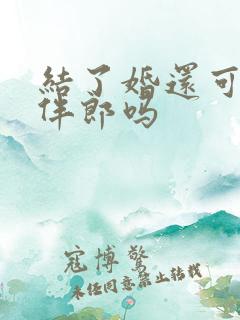 結了婚還可
伴郎吗
寇博驚
未经同意禁止转载